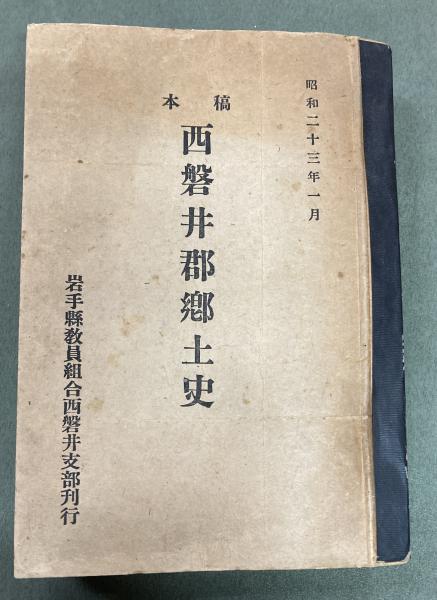 昭和二十三年一月
稿本
西磐井郡鄕土史
岩手縣敎員組合西磐井支部刊行